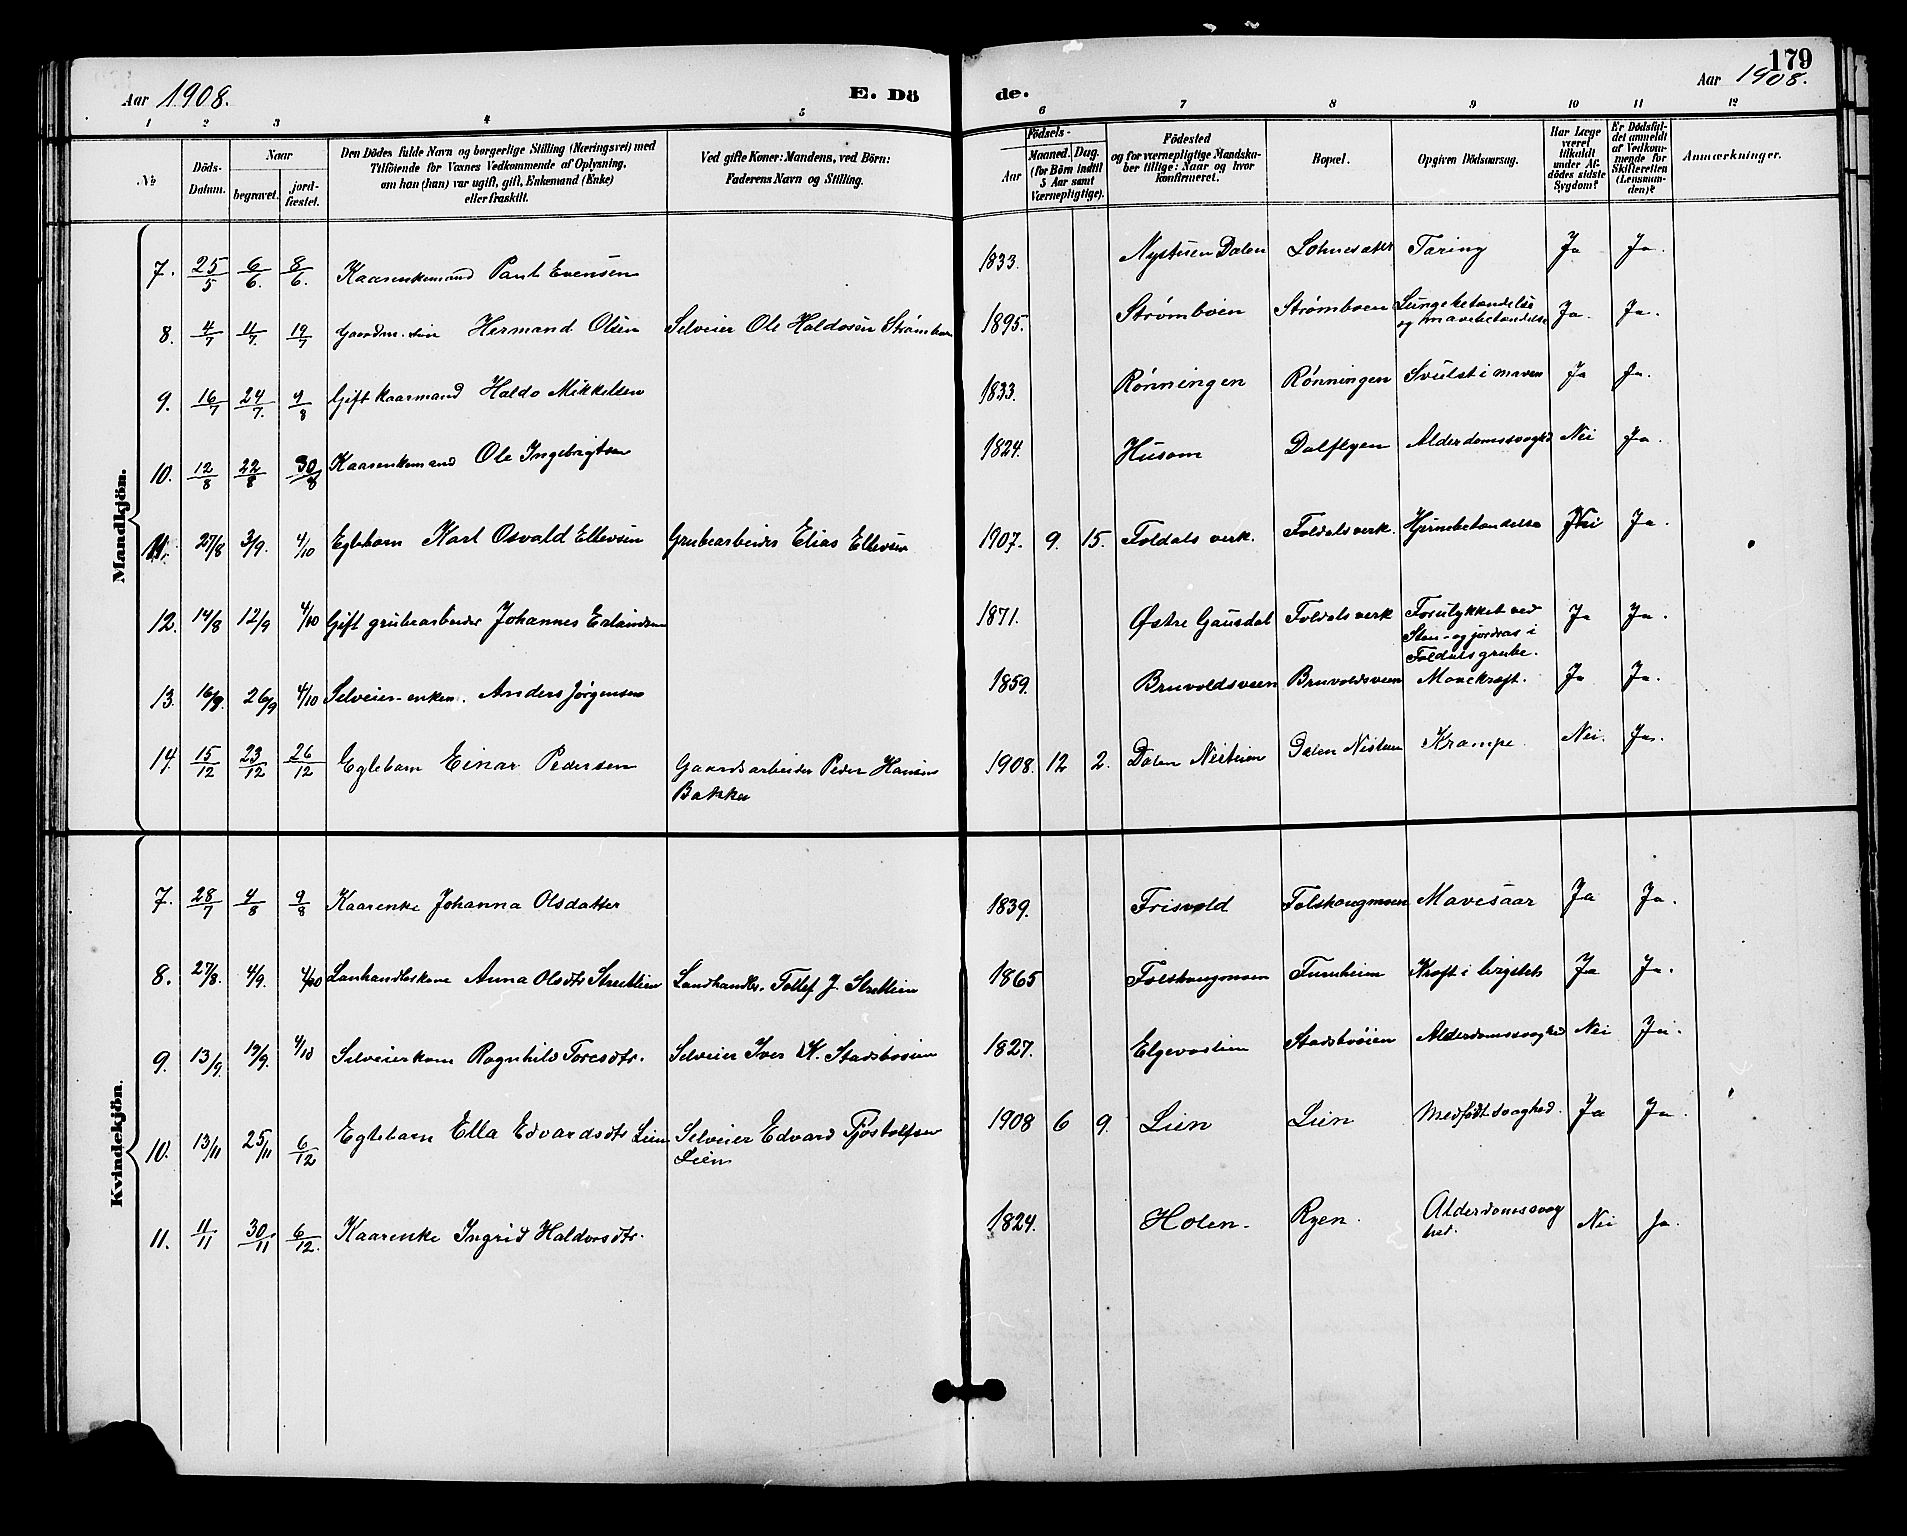 179
Aar 1908. E. Dö de. Aar 1908.
1 2 3 4 5 6 7 8 9 10 11 12
№ Döds-Datum. Naar begravet. jord-fæstet. Den Dödes fulde Navn og borgerlige Stilling (Næringsvei) med Tilföiende for Voxnes Vedkommende af Oplysning, om han (hun) var ugift, gift, Enkemand (Enke) eller fraskilt. Ved gifte Koner: Mandens, ved Börn: Faderens Navn og Stilling. Födsels- Aar Maaned. Dag. (for Börn indtil 5 Aar samt Værnepligtige). Födested og for værnepligtige Mandskaber tillige: Naar og hvor konfirmeret. Bopæl. Opgiven Dödsaarsag. Har Læge været tilkaldt under Afdödes sidste Sygdom? Er Dödsfaldet anmeldt af Vedkommende for Skifteretten (Lensmanden)? Anmærkninger.
Mandkjön.
7. 25/5 6/6. 8/6. Kaarenkemand Paul Evensen 1833. Nystuen Dalen Taring Ja Ja.
8. 4/7 11/7. 19/7 Gaardm. sön Hermand Olsen Selveier Ole Haldosen Strømboen 1895. Strømboen Strømboen Lungebetændelse og mavebetændelse Ja. Ja.
9. 16/7 24/7. 9/8 Gift kaarmand Haldo Mikkelsen 1833. Rønningen Rønningen Svulst i maven Ja Ja.
10. 12/8 22/8 30/8 Kaarenkemand Ole Ingebrigtsen 1824. Husom Dalflyen Alderdomssvaghd Nei Ja.
11. 27/8 3/9. 4/10 Egtebarn Karl Osvald Ellevsen Grubearbeider Elias Ellevsen 1907. 9. 15. Foldals verk. Foldals verk. Hjernebetændelse Nei Ja.
12. 14/8 12/9 4/10 Gift grubearbeider Johannes Erlandsen 1871. Østre Gausdal Foldals verk Forulykket ved Sten- og jordras i Foldals grube. Ja Ja.
13. 16/9. 26/9 4/10 Selveier-enkem. Anders Jørgensen 1859. Bruvoldsveen Bruvoldsveen Mavekræft. Ja Ja.
14. 15/12 23/12 26/12 Egtebarn Einar Pedersen Gaardsarbeider Peder Hansen Bakken 1908. 12 2. Dalen Nisteien Dalen Krampe. Nei. Ja.
Kvindekjön.
7. 28/7 4/8 9/8 Kaarenke Johanna Olsdatter 1839. Frisvold Folshaugmoen Mavesaar Ja Ja.
8. 27/8. 4/9. 4/10 Lanhandleskone Anna Olsdtr Streitlien Landhandler. Tollef J. Streitlien 1865 Folshaugmoen Furuheim Kræft i brystet Ja Ja.
9. 13/9. 19/9. 4/10 Selveierkone Ragnhild Toresdtr. Selveier Iver K. Stadsbuøien 1827. Elgevaslien Stadsbuøien Alderdomssvaghed Nei Ja.
10. 13/11 25/11 6/12 Egtebarn Ella Edvardsdtr Lien Selveier Edvard Tjostolfsen Lien 1908 6 9. Lien Lien Medfødt svaghed. Ja Ja.
11. 11/11 30/11 6/12. Kaarenke Ingrid Haldorsdtr. 1824. Holen. Ryen. Alderdomssvaghet. Nei Ja.